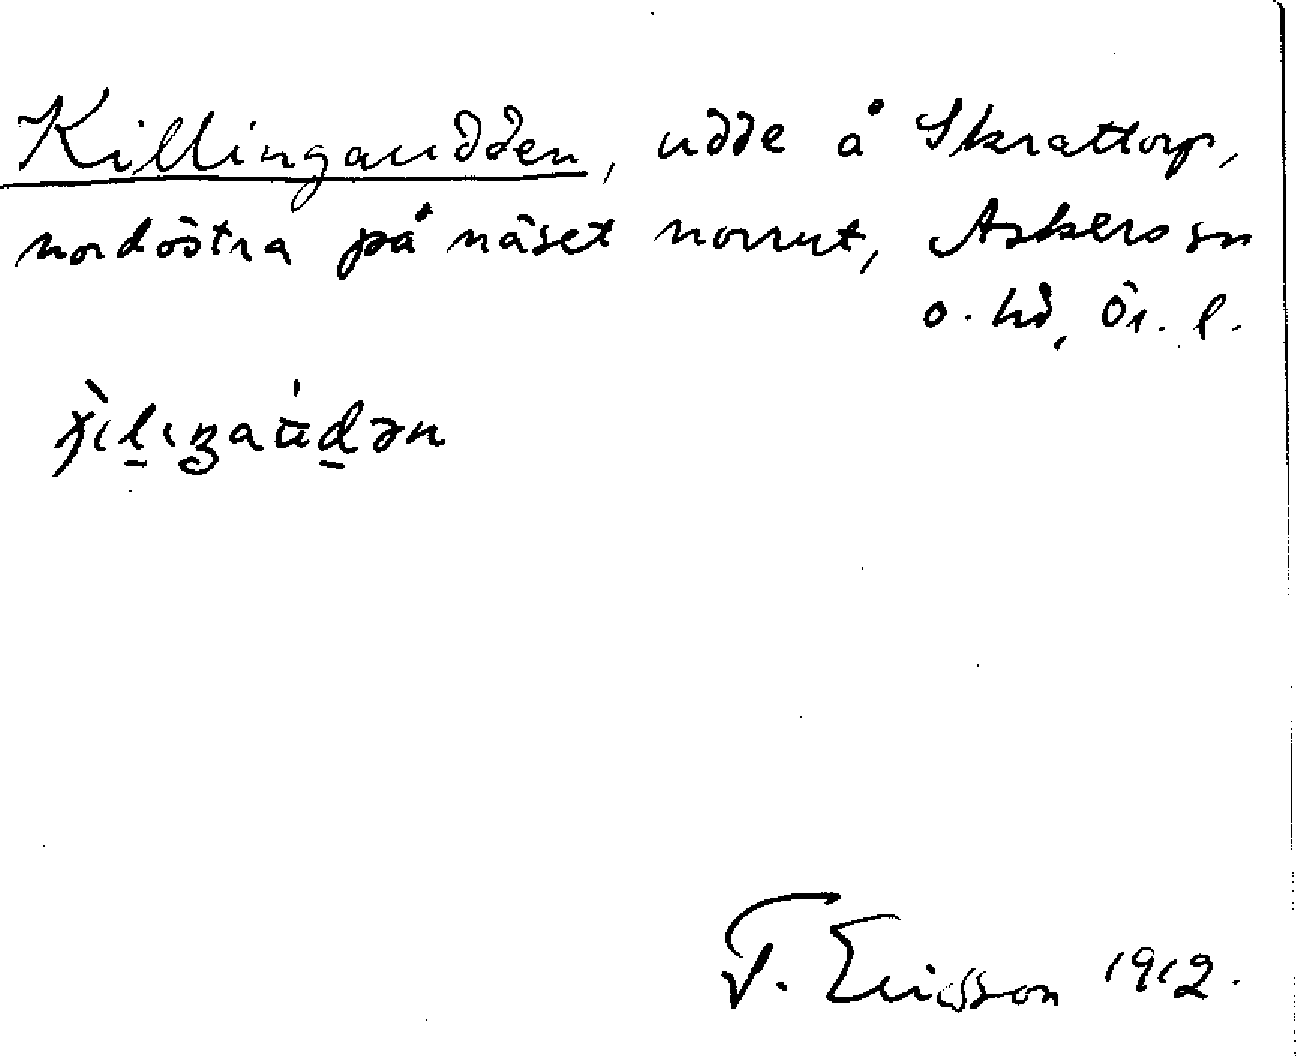 Killingaudden, udde å Skrattorp,
nordöstra på näset norrut, Askers sn
o. hd, Ör. l.
T. Ericsson 1912.